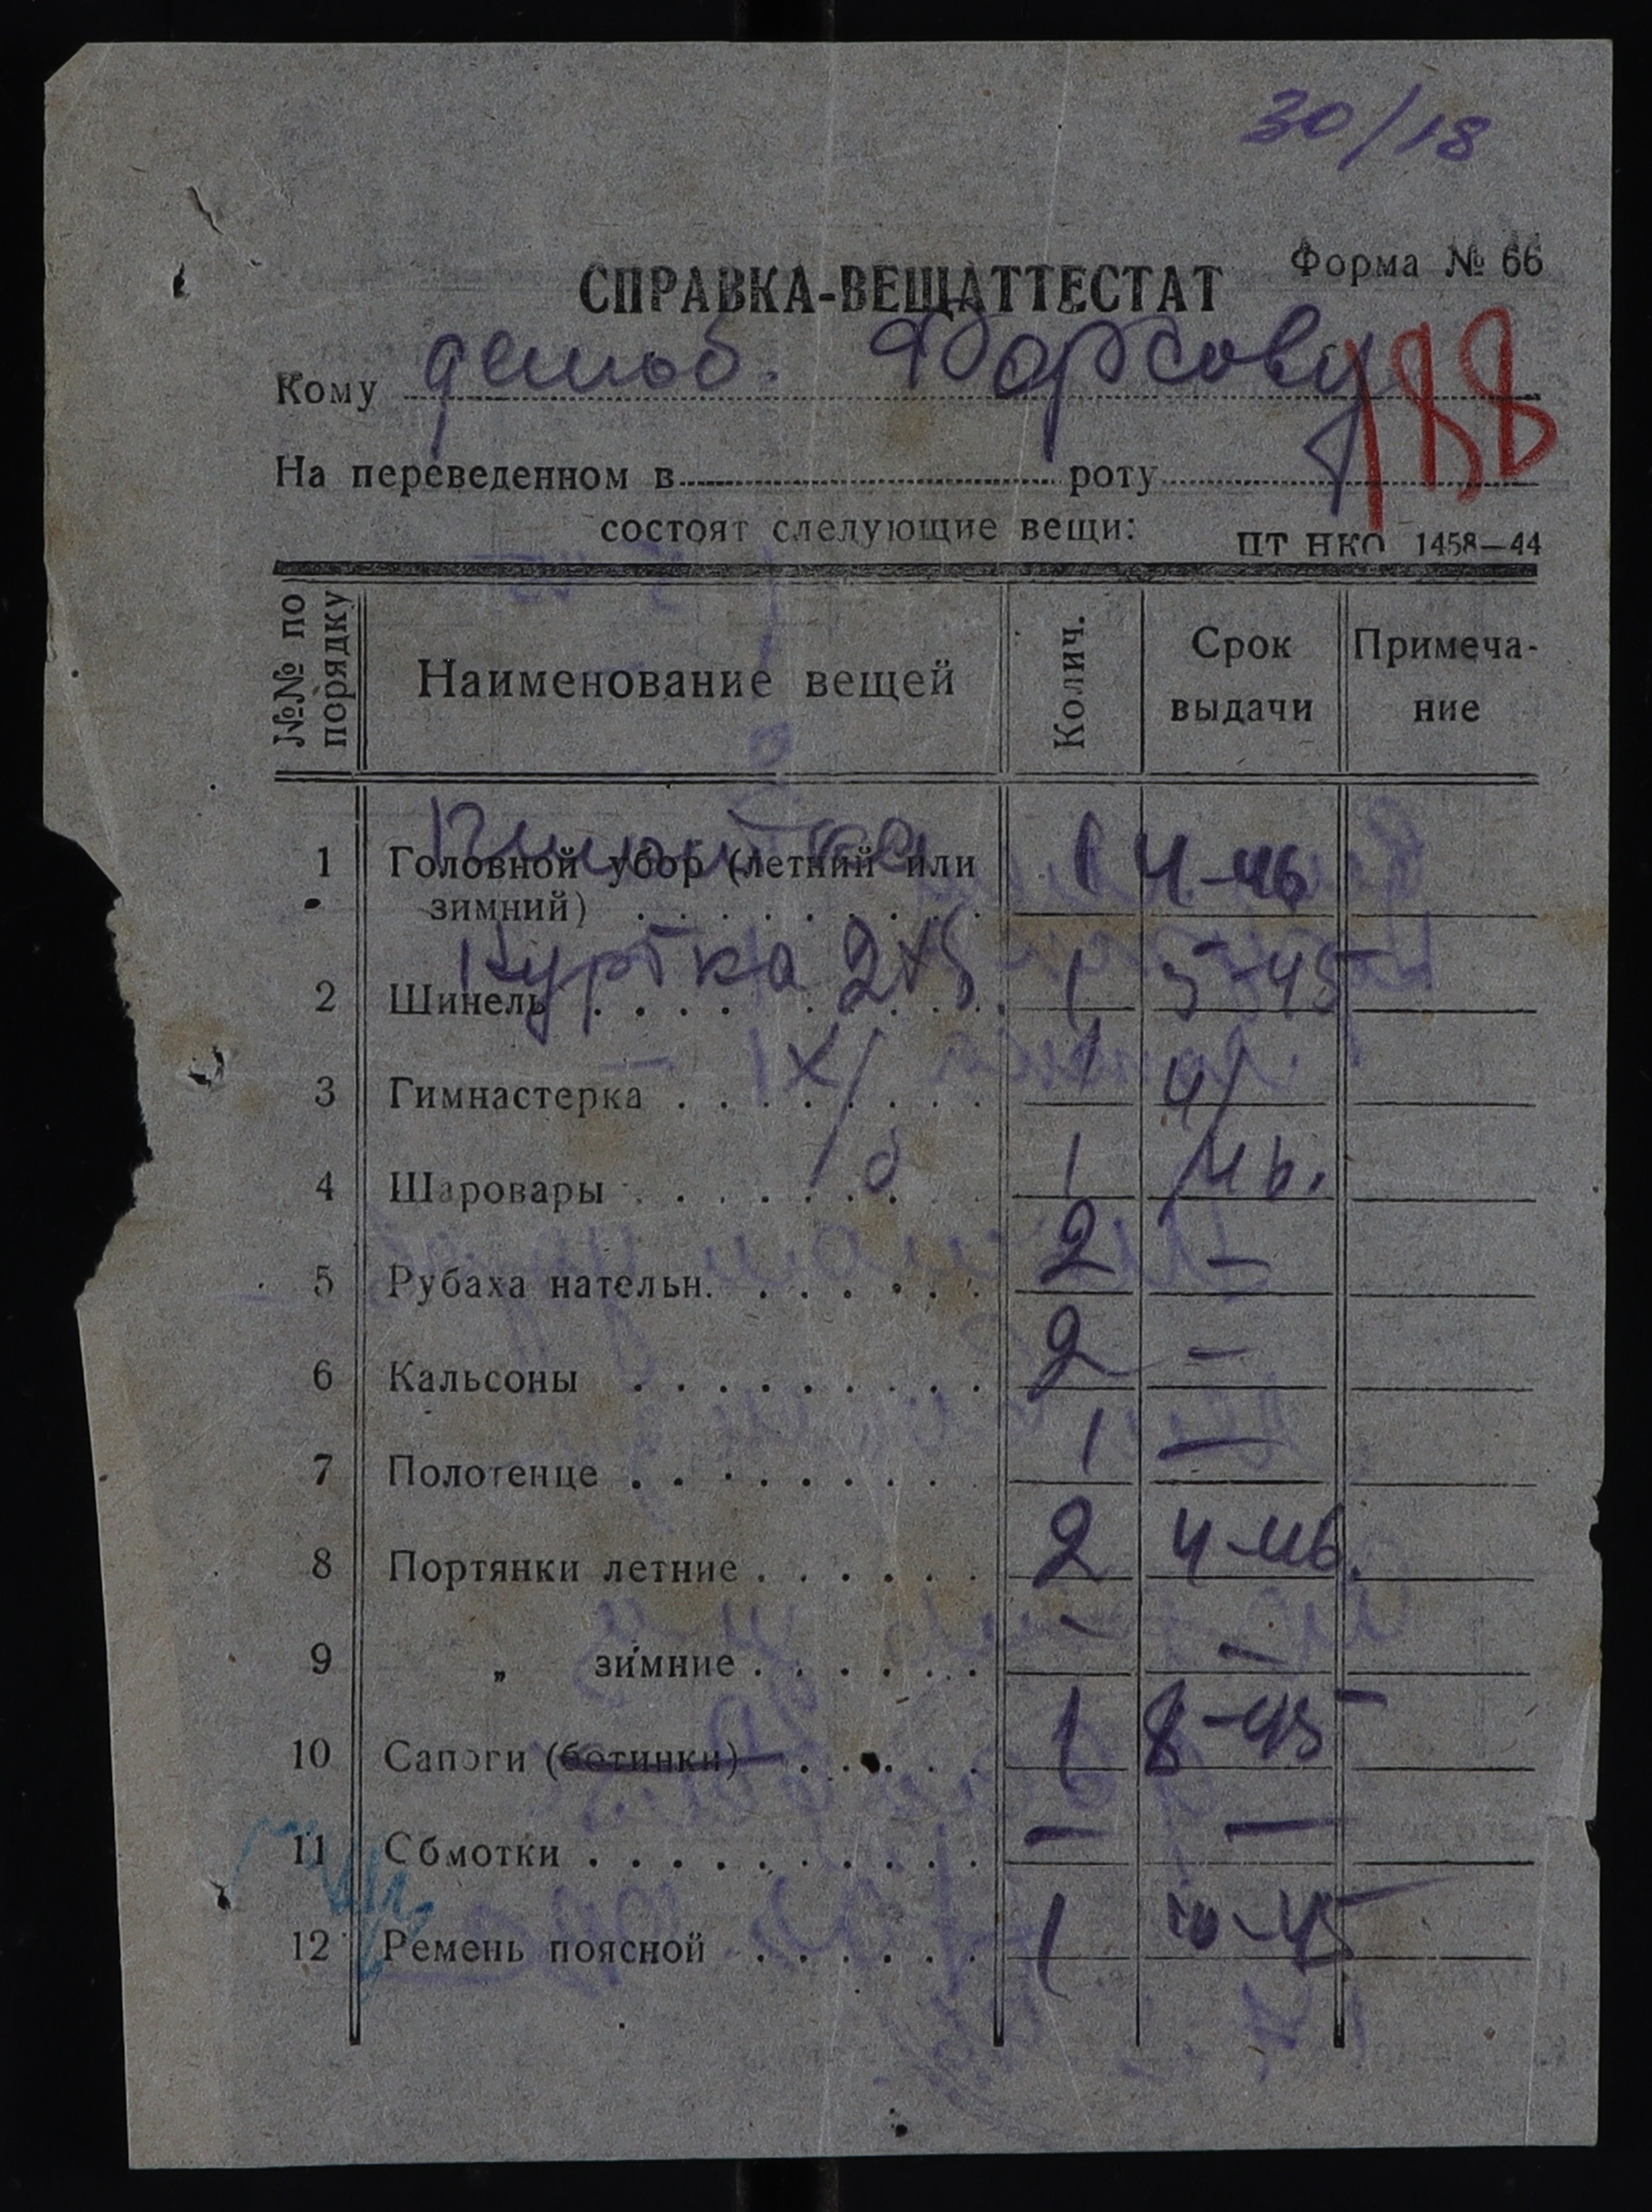 30/18
Форма № 66
СПРАВКА-ВЕЩАТТЕСТАТ
Кому демоб.
188
На переведенном в роту
состоят следующие вещи:
ПТ НКО 1458—44
№№ по порядку Наименование вещей Колич. Срок выдачи Примеча-ние
1 Головной убор (летний или зимний) 1 4-46
2 Шинель Куртка 1 5-45
3 Гимнастерка х/ 1 4/
4 Шаровары б 1 /46.
5 Рубаха нательн. 2 —
6 Кальсоны 2 —
7 Полотенце 1 —
8 Портянки летние 2 4-46.
9 „ зимние — —
10 Сапоги (ботинки) 1 8-45
11 Обмотки — —
12 Ремень поясной 1 10-45